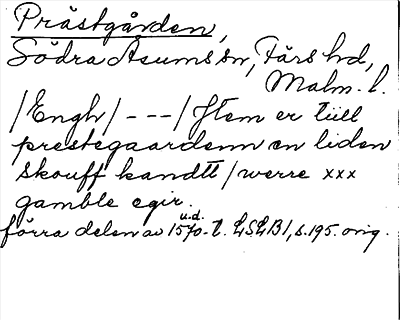 Prästgården,
Södra Åsums sn, Färs hd,
Malm. l.
/Engh/ - - - / Jtem er tiill
prestegaardenn en liden
skouff kandtt / werre xxx
gamble egir.
förra delen av 1570-t. LSLB1, s.195. orig.
u.d.